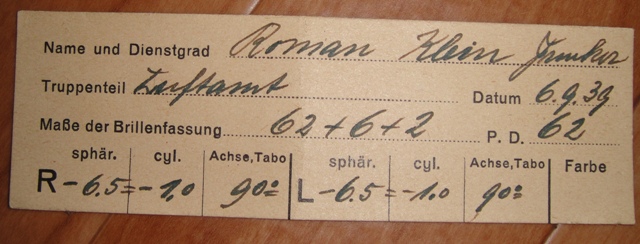 Name und Dienstgrad Roman Klein Funker
Truppenteil Luftamt Datum 6.9.39
Maße der Brillenfassung 62+6+2 P. D. 62
sphär. cyl. Achse,Tabo sphär. cyl. Achse,Tabo Farbe
R -6.5= -1.0 90° L -6.5= -1.0 90°